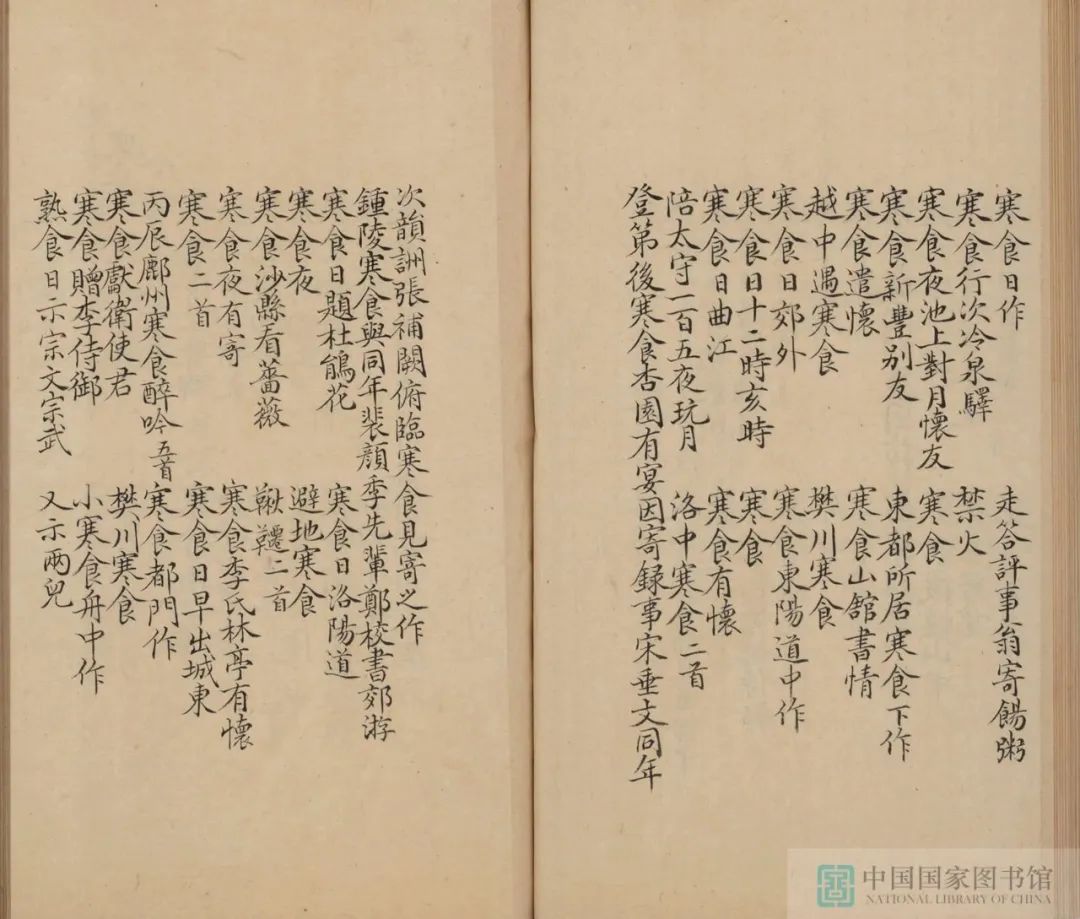 寒食日作 走答評事翁寄餳粥
寒食行次冷泉驛 禁火
寒食夜池上對月懷友 寒食
寒食新豐别友 東都所居寒食下作
寒食遣懷 寒食山館書情
越中遇寒食 樊川寒食
寒食日郊外 寒食東陽道中作
寒食日十二時亥時 寒食
寒食日曲江 寒食有懷
陪太守一百五夜玩月 洛中寒食二首
登第後寒食杏園有宴因寄録事宋垂文同年
次韻詶張補闕俯臨寒食見寄之作
鍾陵寒食與同年裴顔李先輩鄭校書郊游
寒食日題杜鵑花 寒食日洛陽道
寒食夜 避地寒食
寒食沙縣看薔薇 鞦韆二首
寒食夜有寄 寒食李氏林亭有懷
寒食二首 寒食日早出城東
丙辰鄜州寒食醉吟五首 寒食都門作
寒食獻衛使君 樊川寒食
寒食贈李侍御 小寒食舟中作
熟食日示宗文宗武 又示兩兒
中国国家图书馆
NATIONAL LIBRARY OF CHINA